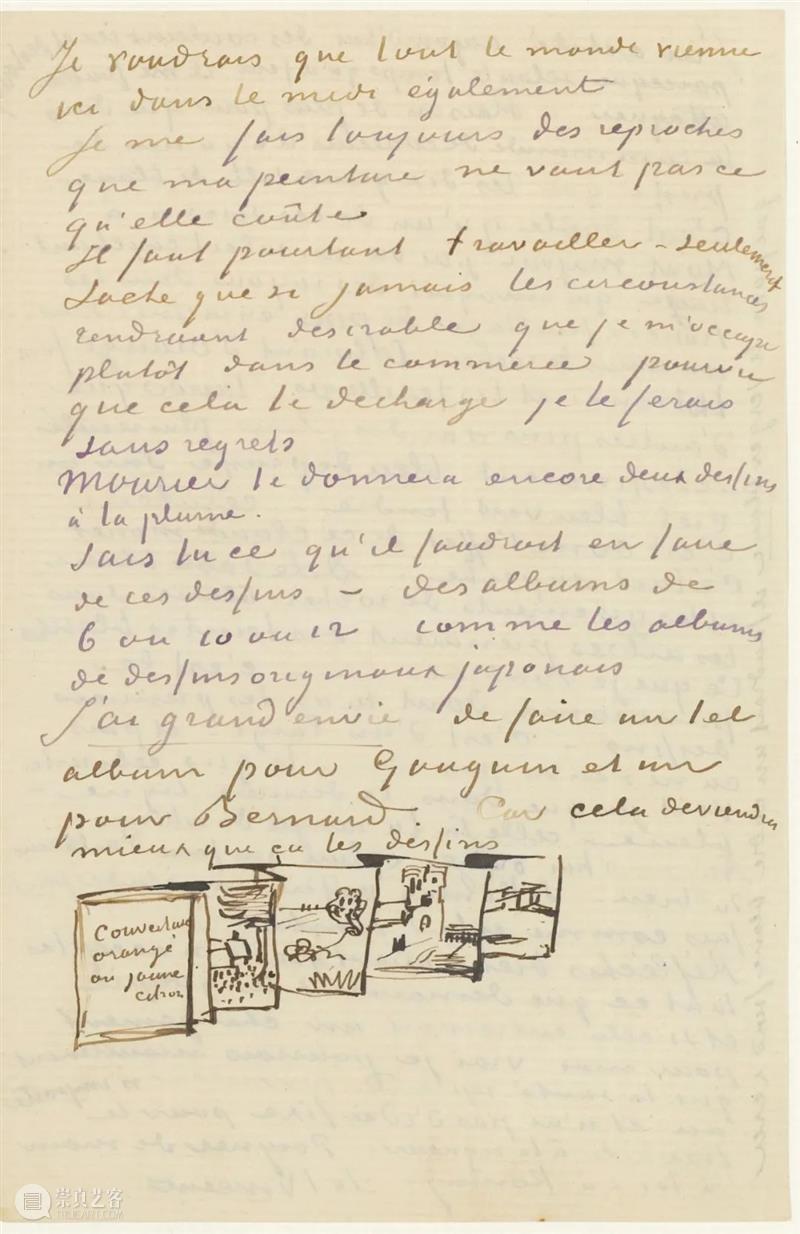 Je voudrais que tout le monde vienne
ici dans le midi également
Je me fais toujours des reproches
que ma peinture ne vaut pas ce
qu'elle coûte
Il faut pourtant travailler – seulement
Sache que si jamais les circonstances
rendraient desirable que je m'occupe
plutôt dans le commerce pourvu
que cela te decharge je le ferais
sans regrets
Mourier te donnera encore deux dessins
à la plume.
Sais tu ce qu'il faudrait en faire
de ces dessins – des albums de
6 ou 10 ou 12 comme les albums
de dessins originaux japonais
J'ai grand envie de faire un tel
album pour Gauguin et un
pour Bernard. Car cela deviendra
mieux que ça les dessins
Couverture
orangé
ou jaune
citron
崇真艺客
TRUEART.COM